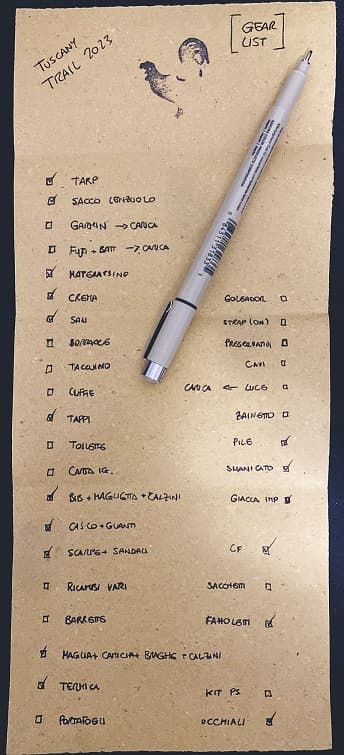 TUSCANY
TRAIL 2023
[GEAR
LIST]
TARP
SACCO LENZUOLO
GARMIN → CARICA
FUJI + BATT → CARICA
MATERASSINO
CREMA
SALI
BORRACCE
TACCUINO
CUFFIE
TAPPI
TOILETTE
CARTA IG.
BIB + MAGLIETTA + CALZINI
CASCO + GUANTI
SCARPE + SANDALI
RICAMBI VARI
BARRETTE
MAGLIA + CAMICIA + BRAGHE + CALZINI
TERMICA
PORTAFOGLI
STRAP (ON)
CAVI
CARICA ← LUCE
PILE
SMANICATO
GIACCA IMP
CF
SACCHETTI
FAZZOLETTI
KIT PS
OCCHIALI